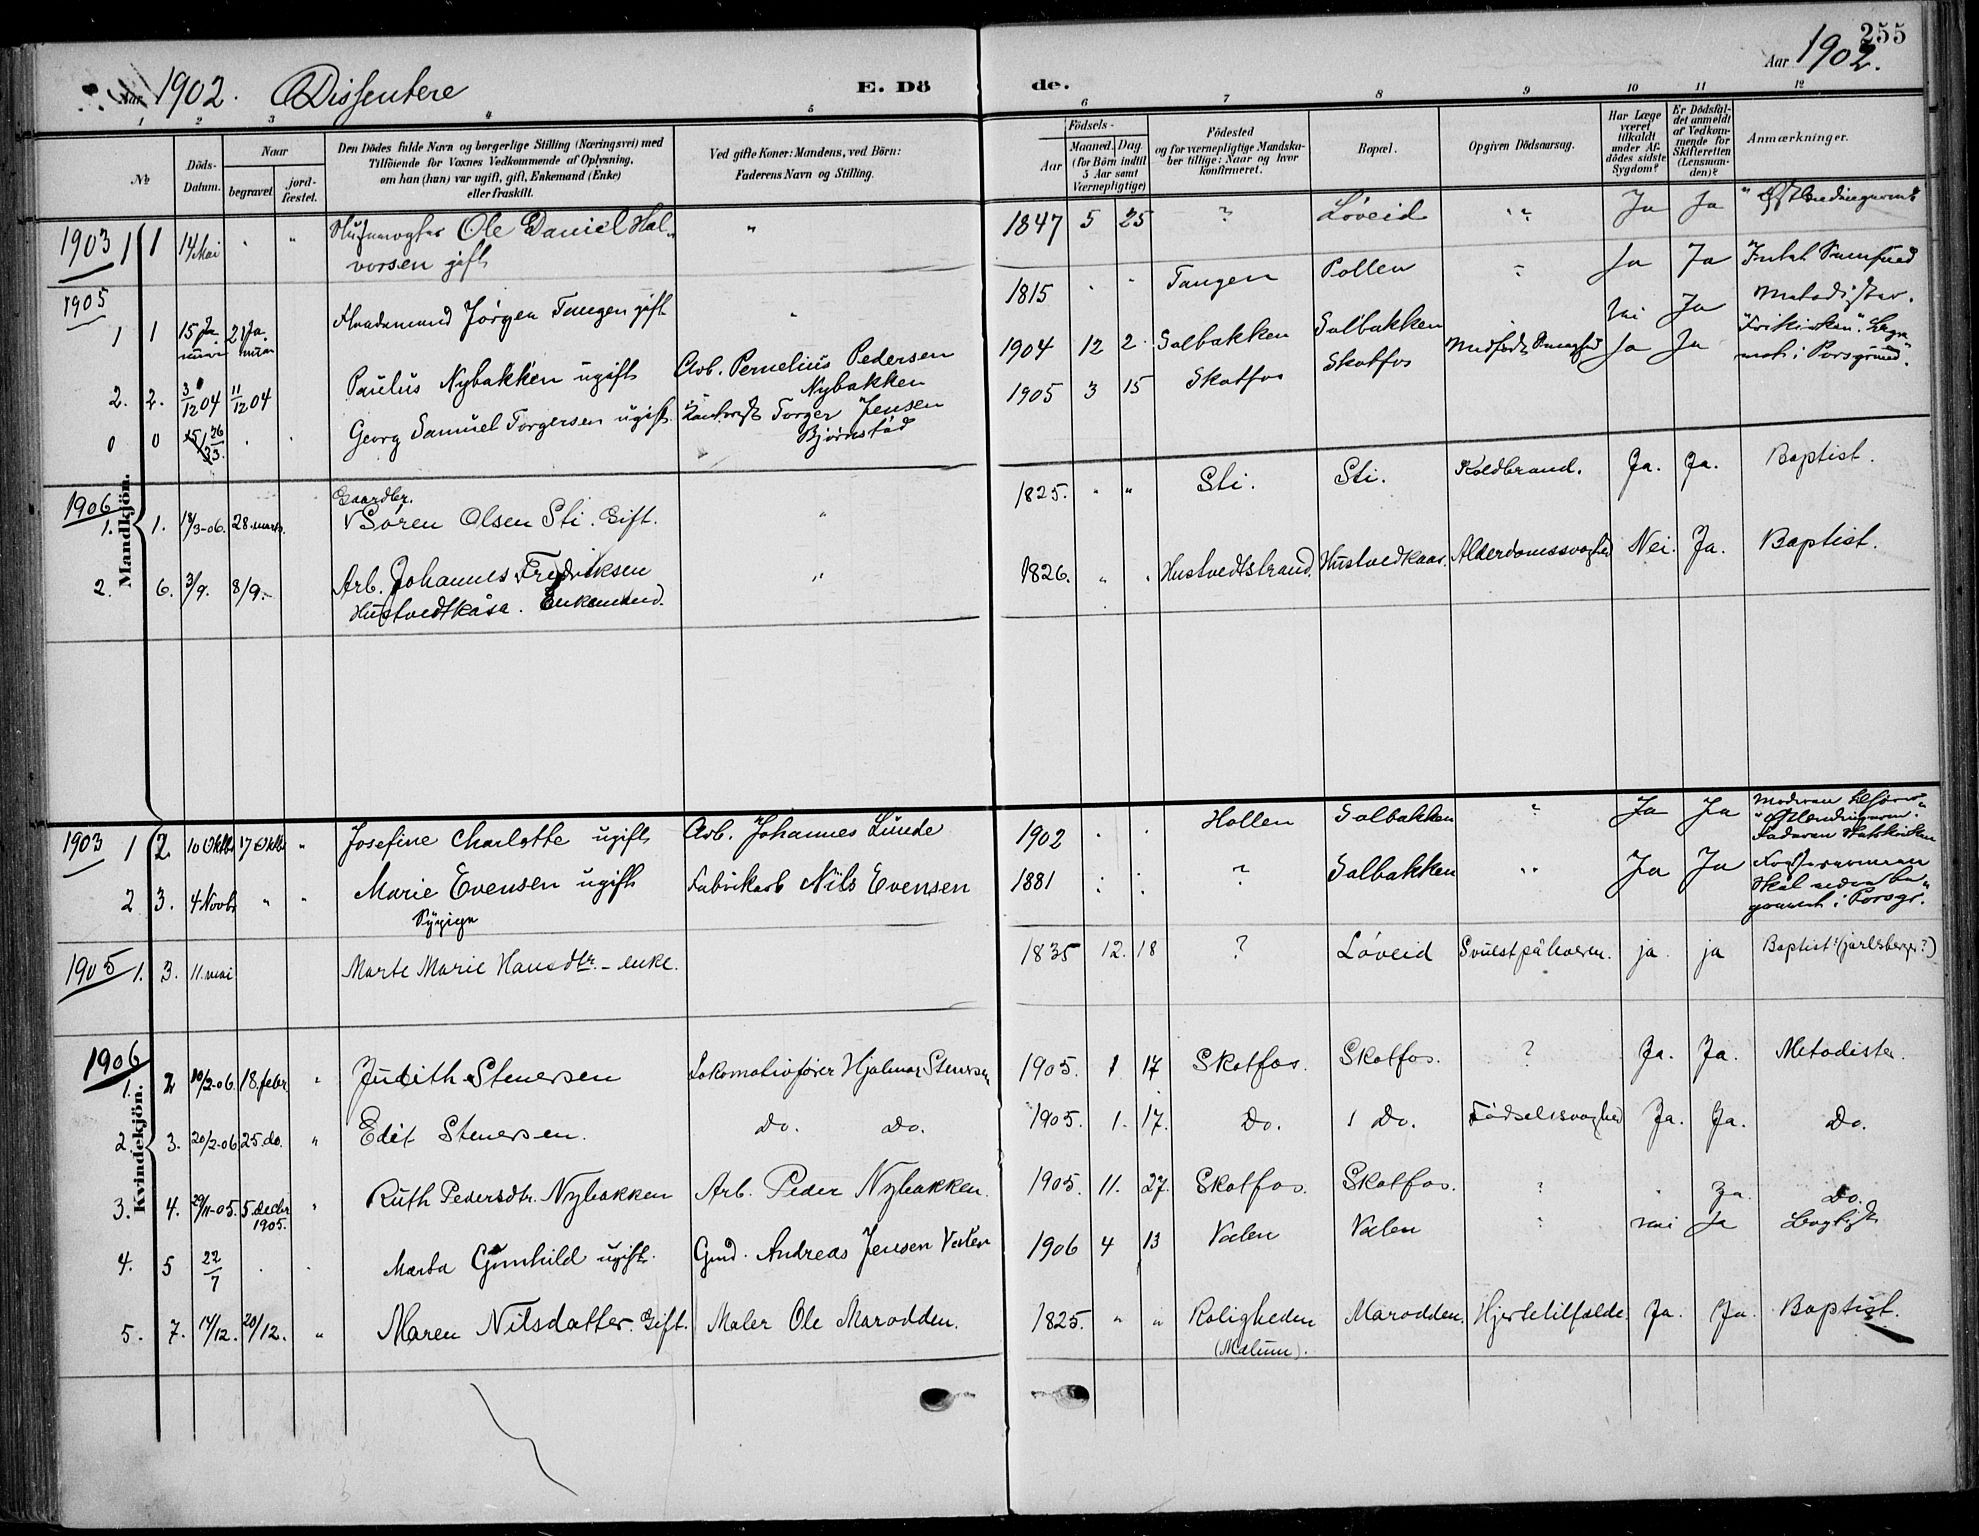 255
Aar 1902. Dissentere E. Dö de. Aar 1902.
1 2 3 4 5 6 7 8 9 10 11 12
№
Döds-Datum.
Naar
begravet.
jord-fæstet.
Den Dödes fulde Navn og borgerlige Stilling (Næringsvei) med
Tilföiende for Voxnes Vedkommende af Oplysning,
om han (hun) var ugift, gift, Enkemand (Enke)
eller fraskilt.
Ved gifte Koner: Mandens, ved Börn:
Faderens Navn og Stilling.
Födsels-
Aar
Maaned. Dag.
(for Börn indtil
5 Aar samt
Værnepligtige)
Födested
og for værnepligtige Mandska-
ber tillige: Naar og hvor
konfirmeret.
Bopæl.
Opgiven Dödsaarsag.
Har Læge
været
tilkaldt
under Af-
dödes sidste
Sygdom?
Er Dödsfal-
det anmeldt
af Vedkom-
mende for
Skifteretten
(Lensman-
den)?
Anmærkninger.
Mandkjön.
1903 1 1 14 Mai " " Ole Daniel Hal-
vorsen gift
" 1847 5 25 ? Løveid " Ja Ja
1905
1 1 15 Ja
nuar 21 Ja
nuar Jørgen Tangen gift " 1815 " " Tangen Pollen " Ja Ja
Metodister.
2. 2. 3/12 04 11/12 04 Paulus Nybakken ugift Arb. Pernelius Pedersen
Nybakken 1904 12 2 Solbakken Solbakken Nei Ja
"Frikirken". Begra-
vet i Porsgrund.
0 0 Georg Samuel Torgersen ugift Torger Jensen
Bjørnstad 1905 3 15 Skotfos Skotfos Ja Ja
1906
1. 1. 18/3-06. 28. marts. Gaardbr.
Søren Olsen Sti. Gift. " 1825. " " Sti. Sti. Koldbrand. Ja. Ja. Baptist.
2. 6. 3/9. 8/9. Arb. Johannes Fredriksen
Hustvedtkåsa. Enkemand. " 1826. " " Hustvedtstrand. Hustvedkaas. Alderdomssvaghed Nei. Ja. Baptist.
Kvindekjön.
1903 1 2 10 Oktbr 17 Oktbr " Josefine Charlotte ugift Arb. Johannes Lunde 1902 " " Hollen Solbakken " Ja Ja
2 3. 4 Novbr " " Marie Evensen ugift
Sypige Fabrikarb Nils Evensen 1881 : : ? Solbakken " Ja Ja
1905 1. 3. 11. mai Marte Marie Hansdtr. – enke. 1835 12. 18 ? Løveid Svulst på leveren. ja. ja Baptist? (jarlsberger?)
1906
1. 2 10/2-06. 18. febr. " Judith Stenersen Lokomotivfører Hjalmar Stenersen 1905. 1 17 Skotfos. Skotfos. ? Ja. Ja. Metodister.
2. 3. 20/2-06 25. do. " Edit Stenersen. Do. Do. 1905. 1. 17. Do. Do. Fødselssvaghed Ja. Ja. Do.
3. 4. 29/11-05. 5. decbr
1905. " Ruth Pedersdtr. Nybakken Arb. Peder Nybakken. 1905. 11. 27. Skotfos. Skotfos. ? . Ja. Do.
4. 5 22/7 . . Marta Gunhild ugift. Gmd. Andreas Jensen Valen 1906 4 13 Valen Valen nei Ja
5. 7. 14/12. 20/12. " Maren Nilsdatter. Gift. Maler Ole Marodden. 1825. " " Roligheden
(Melum). Marodden. Hjertetilfælde. Ja. Ja. Baptist.